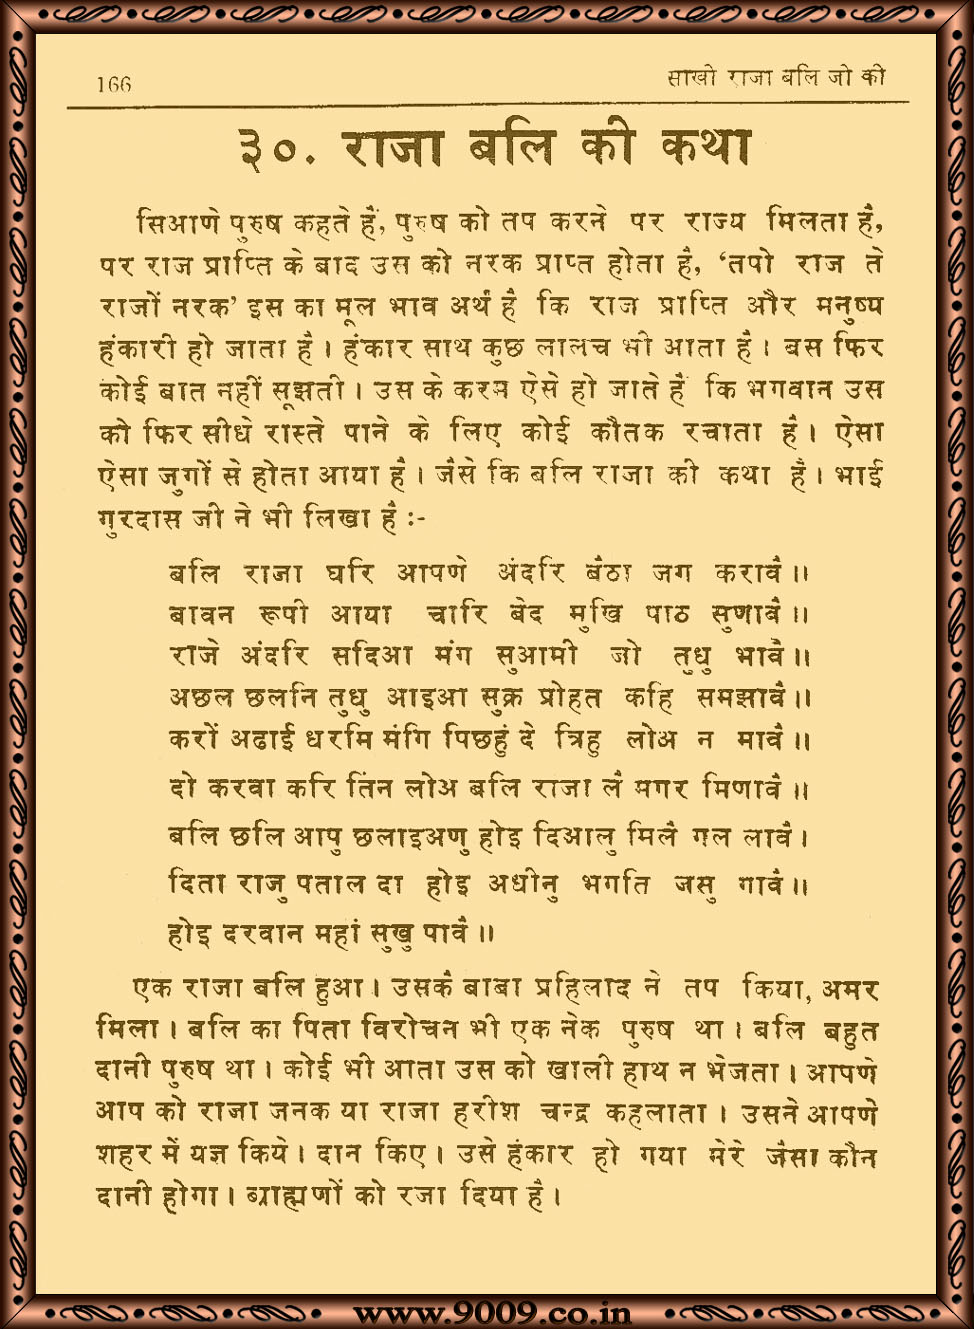 166
साखी राजा बलि जी की
३०. राजा बलि की कथा
सिआणे पुरुष कहते हैं, पुरुष को तप करने पर राज्य मिलता है,
पर राज प्राप्ति के बाद उस को नरक प्राप्त होता है, ‘तपो राज ते
राजों नरक’ इस का मूल भाव अर्थ है कि राज प्राप्ति और मनुष्य
हंकारी हो जाता है । हंकार साथ कुछ लालच भी आता है । बस फिर
कोई बात नहीं सूझती । उस के करम ऐसे हो जाते हैं कि भगवान उस
को फिर सीधे रास्ते पाने के लिए कोई कौतक रचाता है । ऐसा
ऐसा जुगों से होता आया है । जैसे कि बलि राजा की कथा है । भाई
गुरदास जी ने भी लिखा है :-
बलि राजा घरि आपणे अंदरि बैठा जग करावै ॥
बावन रूपी आया चारि बेद मुखि पाठ सुणावै ॥
राजे अंदरि सदिआ मंग सुआमी जो तुधु भावै ॥
अछल छलनि तुधु आइआ सुक्र प्रोहत कहि समझावै ॥
करों अढाई धरमि मंगि पिछहुं दे त्रिहु लोअ न मावै ॥
दो करवा करि तिंन लोअ बलि राजा लै मगर मिणावै ॥
बलि छलि आपु छलाइअणु होइ दिआलु मिलै गल लावै ।
दिता राजु पताल दा होइ अधीनु भगति जसु गावै ॥
होइ दरवान महां सुखु पावै ॥
एक राजा बलि हुआ । उसकै बाबा प्रहिलाद ने तप किया, अमर
मिला । बलि का पिता विरोचन भी एक नेक पुरुष था । बलि बहुत
दानी पुरुष था । कोई भी आता उस को खाली हाथ न भेजता । आपणे
आप को राजा जनक या राजा हरीश चन्द्र कहलाता । उसने आपणे
शहर में यज्ञ किये । दान किए । उसे हंकार हो गया मेरे जैसा कौन
दानी होगा । ब्राह्मणों को रजा दिया है ।
www.9009.co.in